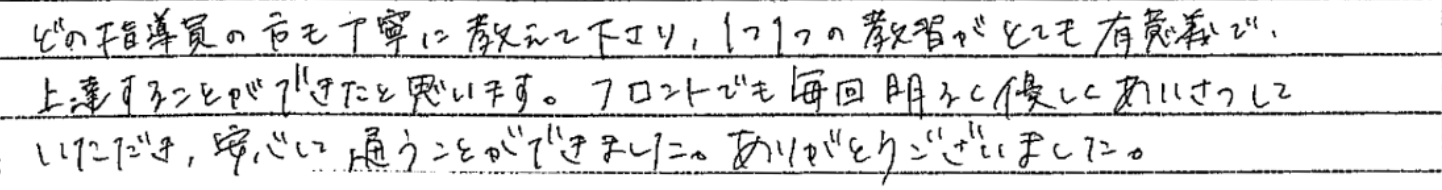 どの指導員の方も丁寧に教えて下さり、1つ1つの教習がとても有意義で、
上達することができたと思います。フロントでも毎回明るく優しくあいさつして
いただき、安心して通うことができました。ありがとうございました。